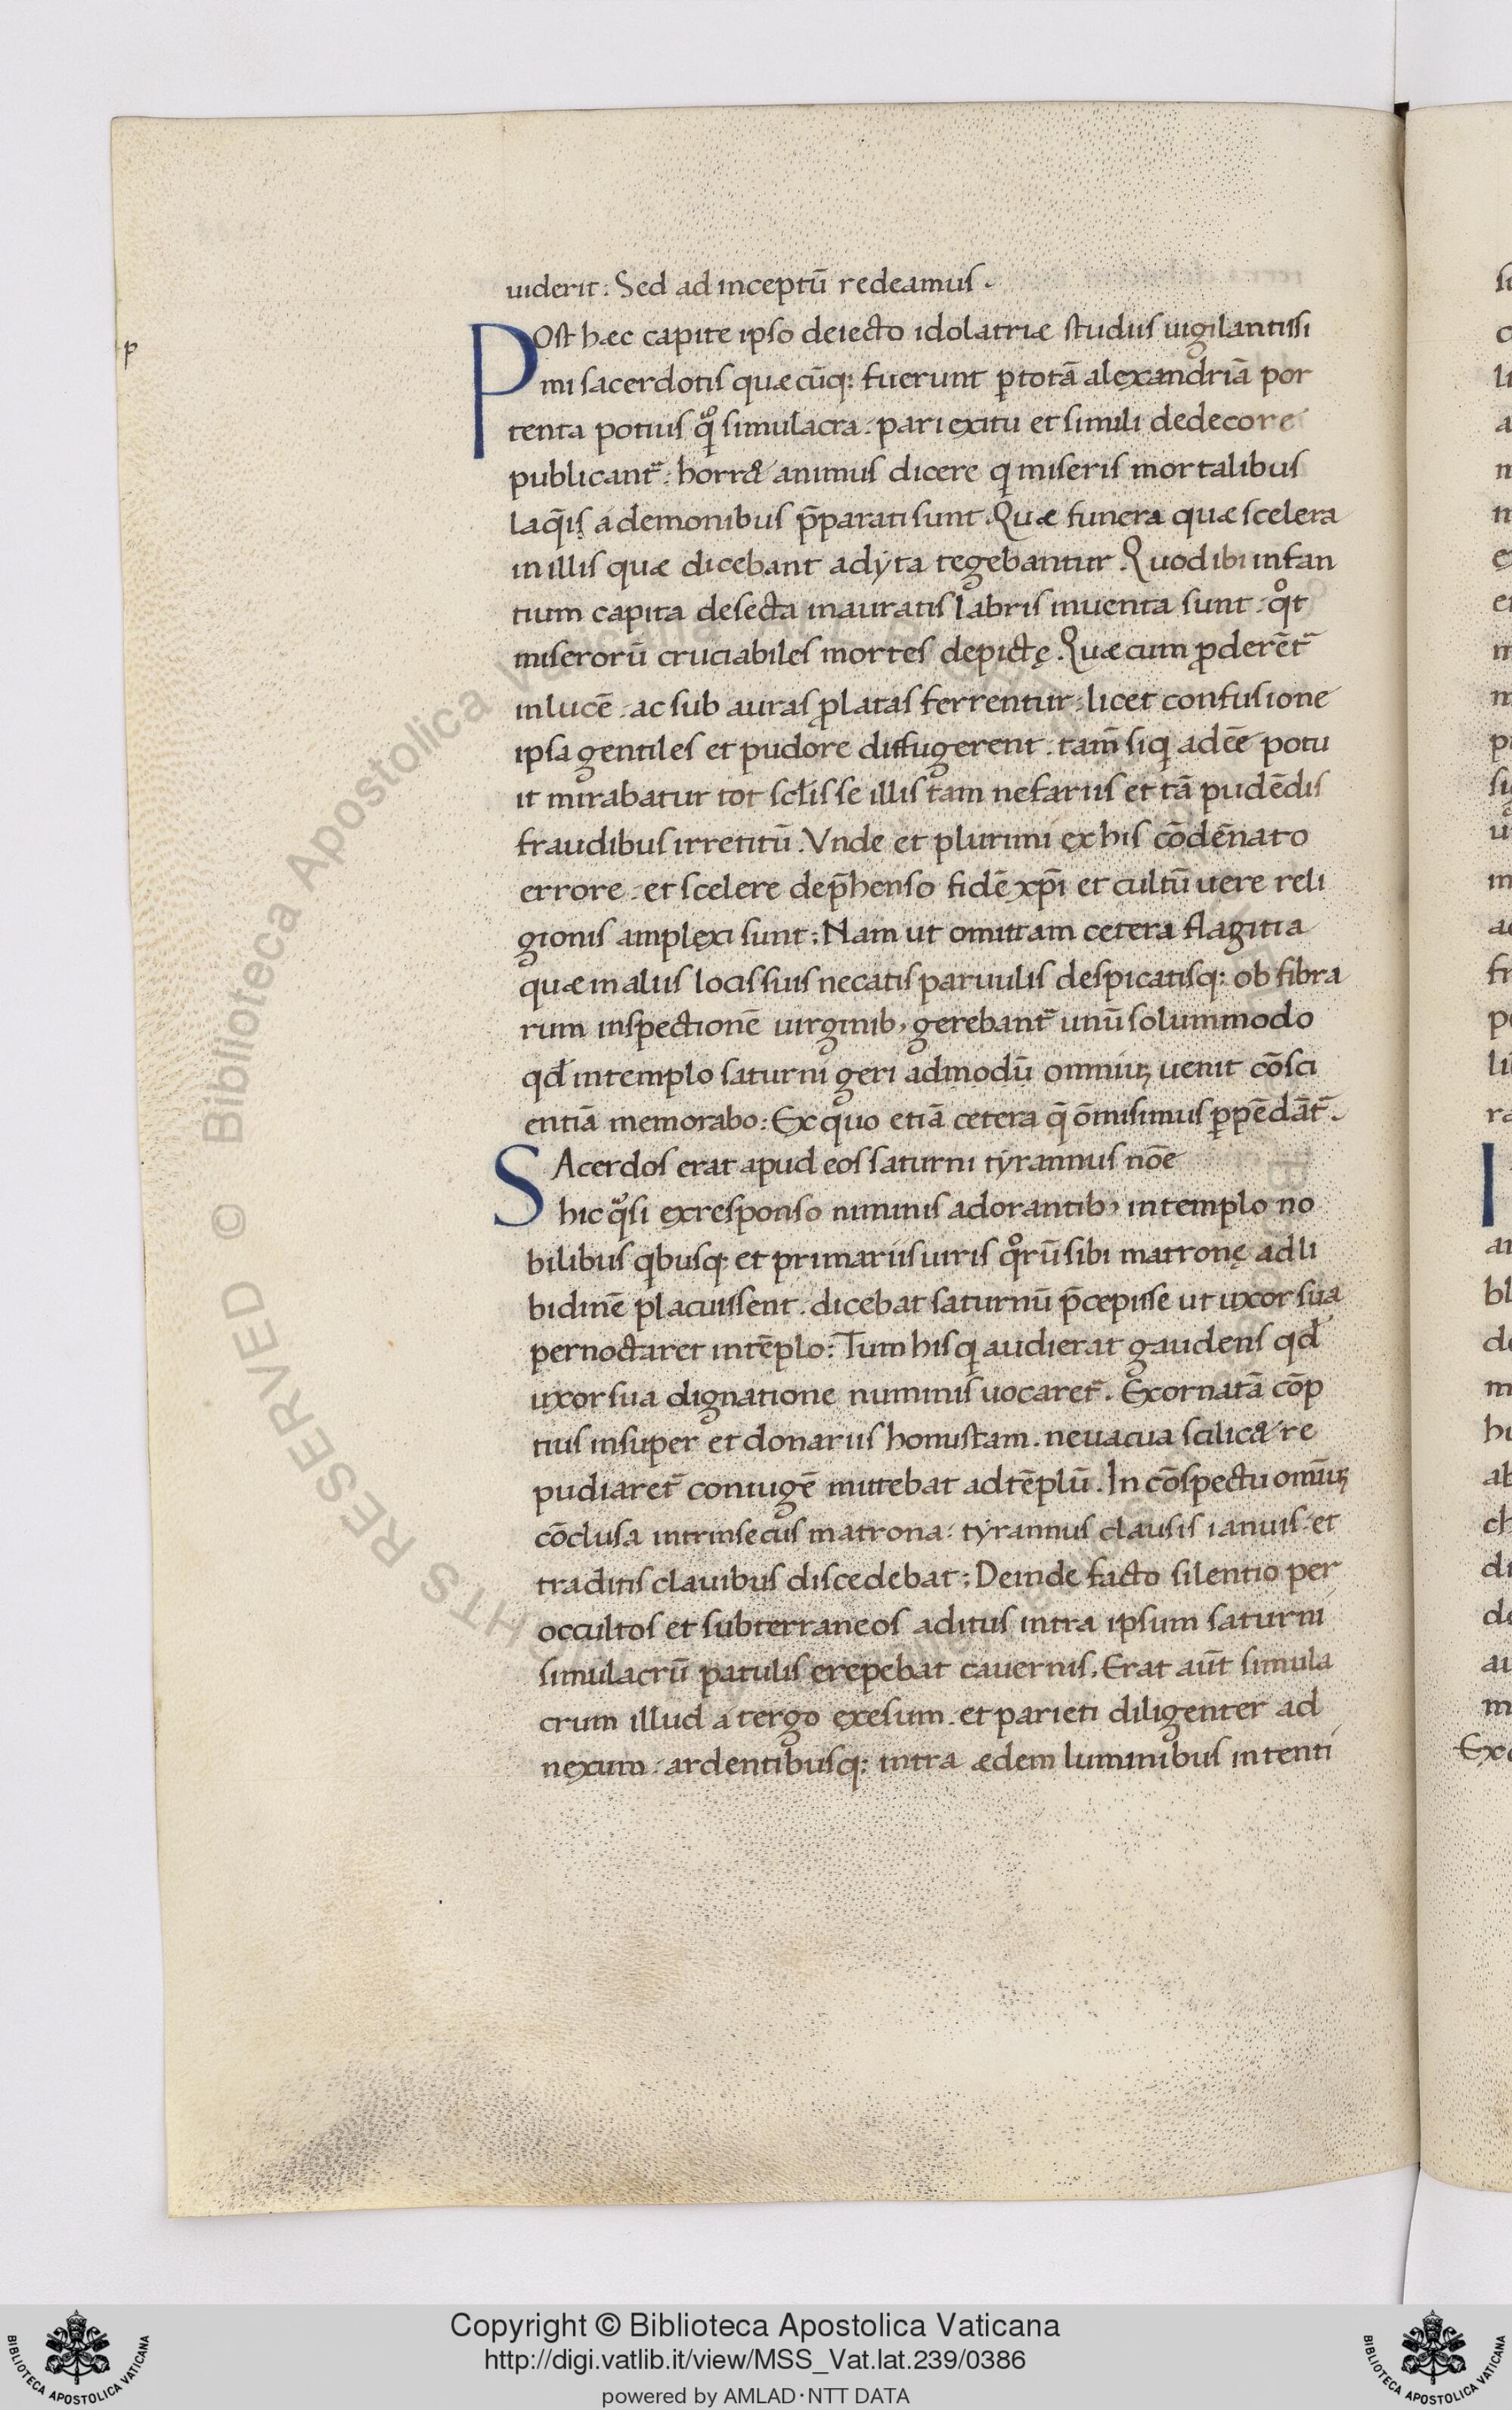 uiderit: Sed ad inceptū redeamus.
POst hæc capite ipso deiecto idolatriæ studiis uigilantissi
p
mi sacerdotis quæcūq; fuerunt ꝑ totā alexandriā por
tenta potius qͦ simulacra. pari exitu et simili dedecore
publicant᷑: horr& animus dicere q miseris mortalibus
laq̄is a demonibus p̄parati sunt. Quæ funera quæ scelera
in illis quæ dicebant adyta tegebantur. Quod ibi infan
tium capita desecta inauratis labris inuenta sunt. qͦt
miserorū cruciabiles mortes depictę. Quæ cum ꝓderēt᷑
in lucē. ac sub auras ꝓlatas ferrentur. licet confusione
ipsa gentiles et pudore diffugerent. tam̄ siq adēē potu
it mirabatur tot scl̄is se illis tam nefariis et tā pudēdis
fraudibus irretitū. Vnde et plurimi ex his cōdēnato
errore. et scelere dep̄henso fidē xp̄i et cultū uere reli
gionis amplexi sunt; Nam ut omittam cetera flagitia
quæ in aliis locis suis necatis paruulis despicatisq; ob fibra
rum inspectionē uirginib, gerebant᷑ unū solummodo
qđ in templo saturni geri admodū omniuꝫ uenit cōsci
entiā memorabo: Ex quo etiā cetera q̄ ōmisimus ꝑpēdāt᷑.
SAcerdos erat apud eos saturni tyrannus nōe
hic qͣsi ex responso numinis adorantib, in templo no
bilibus qbusq; et primariis uiris qͦrū sibi matronę ad li
bidinē placuissent. dicebat saturnū p̄cepisse ut uxor sua
pernoctaret in tēplo: Tum his q audierat gaudens qđ
uxor sua dignatione numinis uocaret᷑. Exornatā cōp
tius insuper et donariis honustam. ne uacua scilic& re
pudiaret᷑ coniugē mittebat ad tēplū. In cōspectu omīuꝫ
cōclusa intrinsecus matrona. tyrannus clausis ianuis. et
traditis clauibus discedebat; Deinde facto silentio per
occultos et subterraneos aditus intra ipsum saturni
simulacrū patulis erepebat cauernis. Erat aūt simula
crum illud a tergo exesum. et parieti diligenter ad
nexum. ardentibusq; intra ædem luminibus intenti
© Biblioteca Apostolica Vaticana
Copyright © Biblioteca Apostolica Vaticana
http://digi.vatlib.it/view/MSS_Vat.lat.239/0386
powered by AMLAD·NTT DATA
BIBLIOTECA APOSTOLICA VATICANA
BIBLIOTECA APOSTOLICA VATICANA